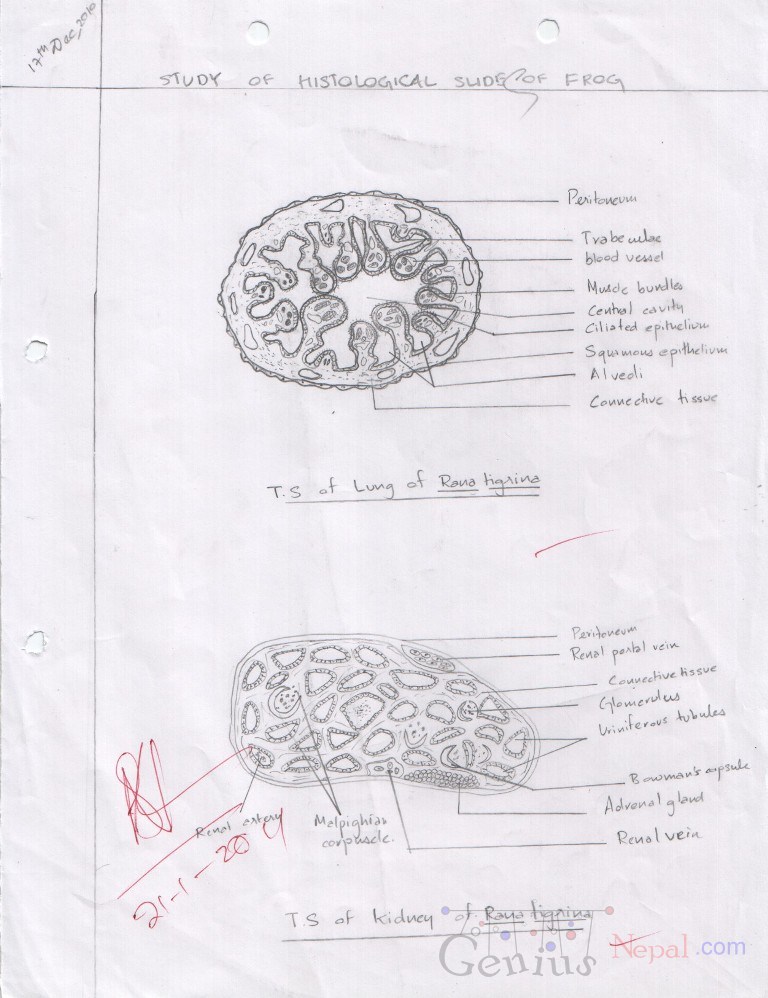 17th Dec, 2010
STUDY OF HISTOLOGICAL SLIDES OF FROG
Peritoneum
Trabeculae
blood vessel
Muscle bundles
Central cavity
Ciliated epithelium
Squamous epithelium
Alveoli
Connective tissue
T.S of Lung of Rana tigrina
Peritoneum
Renal portal vein
Connective tissue
Glomerulus
Uriniferous tubules
Bowman's capsule
Adrenal gland
Renal vein
Renal artery
Malpighian
corpuscle.
T.S of kidney of Rana tigrina
Genius Nepal.com